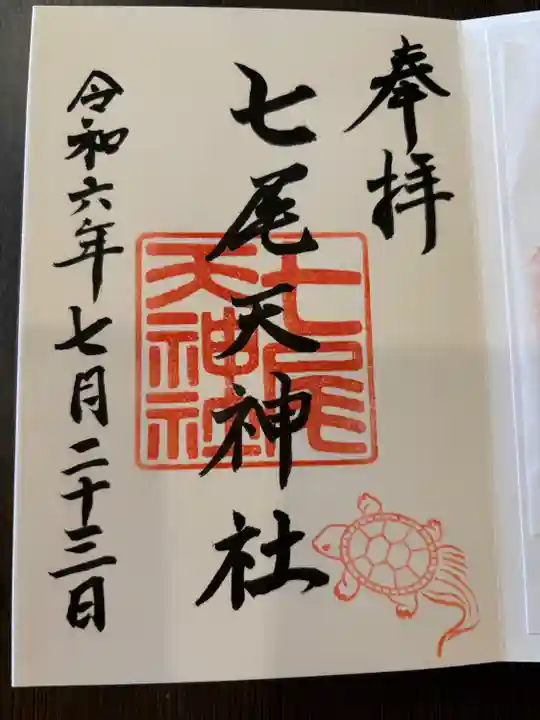 奉拝
七尾天神社
七尾
天神社
令和六年七月二十三日